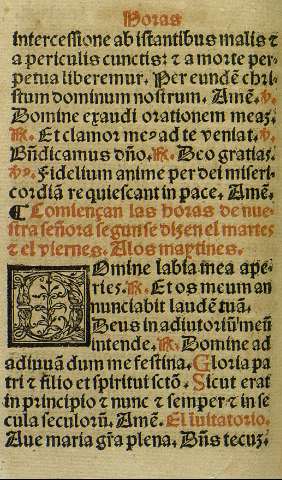 Horas
intercessione ab istantibus malis ⁊
a periculis cunctis: ⁊ a morte per-
petua liberemur. Per eundē chri-
stum dominum nostrum. Amē. ℣.
Domine exaudi orationem meaȝ.
℟. Et clamor me⁹ ad te veniat. ℣.
Bñdicamus dño. ℟. Deo gratias.
℣. Fidelium anime per dei miseri
cordiā requiescant in pace. Amē.
¶ Comiençan las horas de nue-
stra señora segun se dizen el martes
⁊ el viernes. A los maytines.
Domine labia mea ape-
ries. ℟. Et os meum an
nunciabit laudē tuā.
Deus in adiutoriū meū
intende. ℟. Domine ad
adiuuādum me festina. Gloria pa
tri ⁊ filio et spiritui sctō. Sicut erat
in principio ⁊ nunc ⁊ semper ⁊ in se
cula seculorū. Amē. El īuitatorio.
Aue maria grā plena. Dñs tecuȝ.